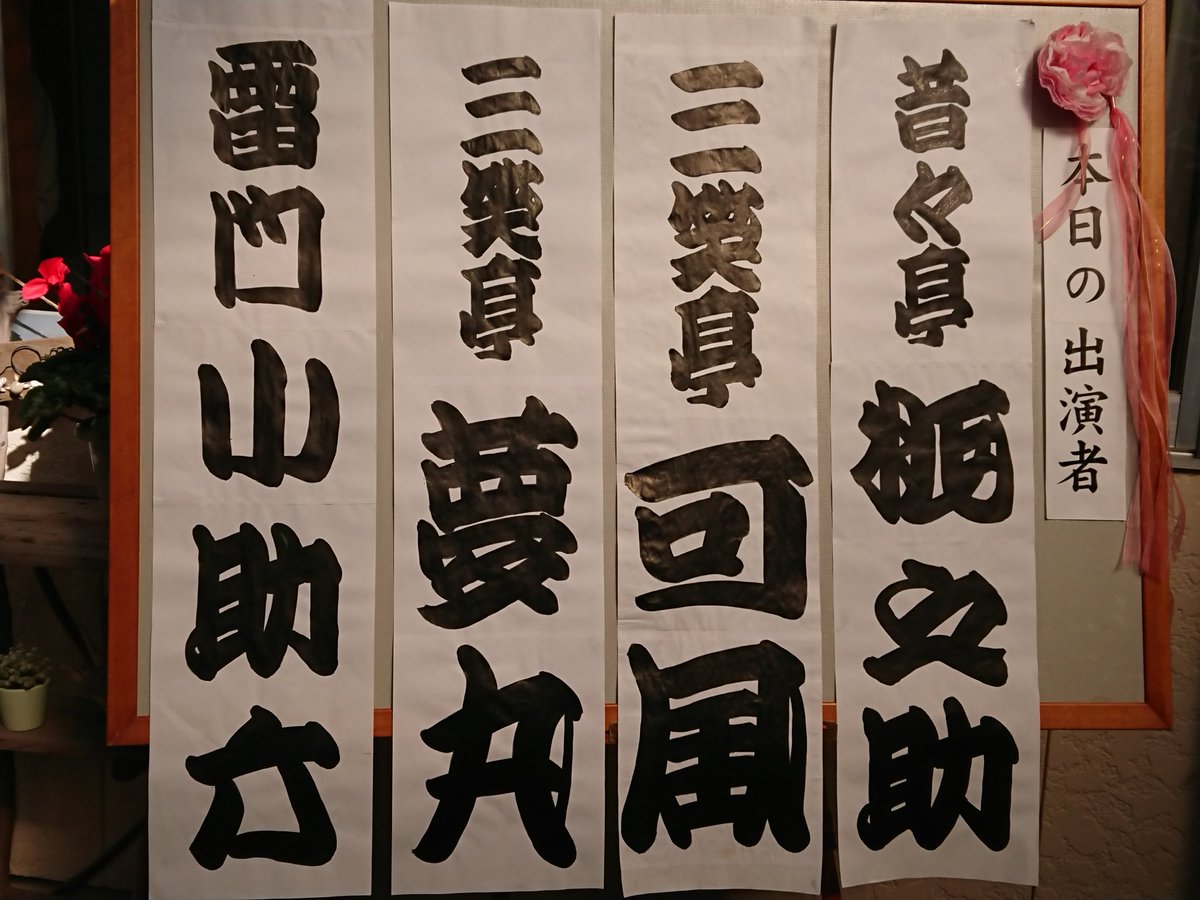 本日の出演者
昔々亭桐之助
三笑亭可風
三笑亭夢丸
雷門小助六